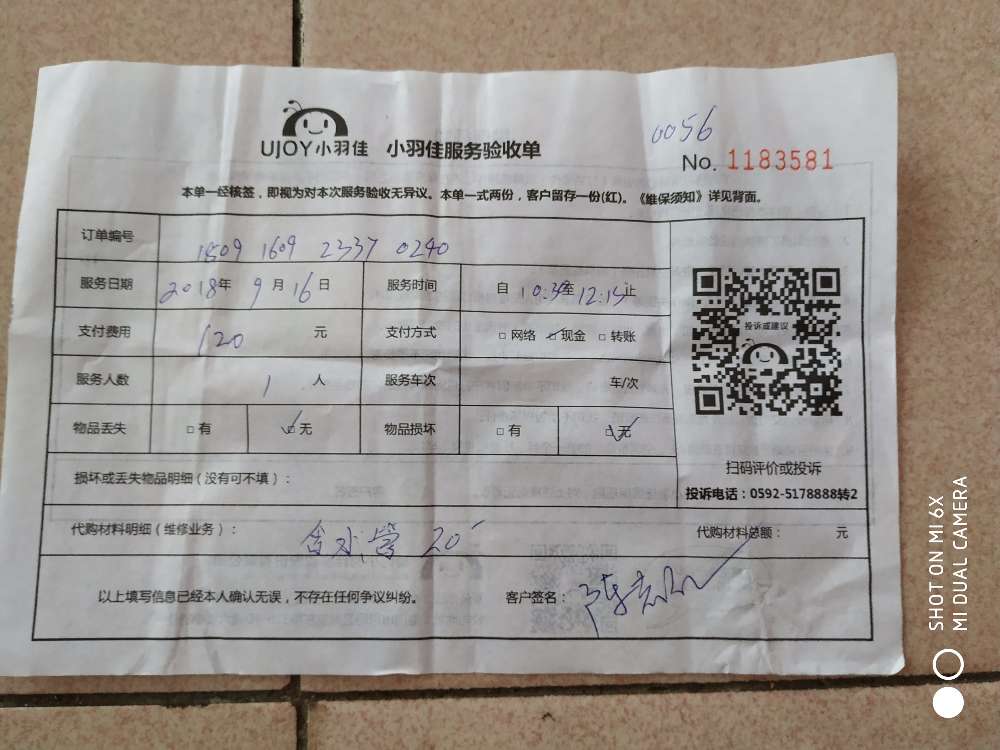 0056
UJOY小羽佳 小羽佳服务验收单
No. 1183581
本单一经核签，即视为对本次服务验收无异议。本单一式两份，客户留存一份(红)。《维保须知》详见背面。
订单编号 1509 1609 2337 0240
服务日期 2018年 9月16日 服务时间 自 10:35至12:15止
支付费用 120 元 支付方式 □网络 ☑现金 □转账
服务人数 1 人 服务车次 车/次
物品丢失 □有 ☑无 物品损坏 □有 ☑无
投诉或建议
扫码评价或投诉
投诉电话：0592-5178888转2
损坏或丢失物品明细（没有可不填）：
代购材料明细（维修业务）： 含水管 20 代购材料总额： 元
以上填写信息已经本人确认无误，不存在任何争议纠纷。 客户签名：
SHOT ON MI 6X
MI DUAL CAMERA